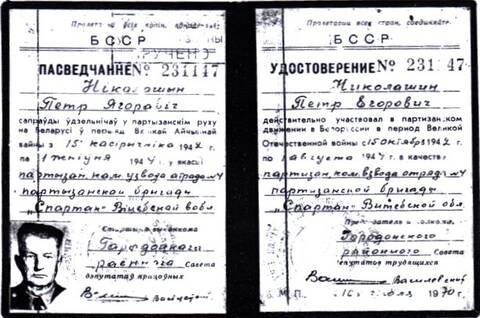 Пролетарии всех краін, аднайцеся!
БССР
ВРУЧЕНО
ПАСВЕДЧАННЕ № 231147
Нікалашын
Петр Ягоравіч
сапраўды ўдзельнічаў у партызанскім руху
на Беларусі ў перыяд Вялікай Айчыннай
вайны з 15 кастрычніка 1942 г.
па 1 1944 г. у якасці
партызан, ком. узвода атрада №4
партызанской бригады
„Спартак" Віцебской вобл.
Гарадоцкого
раённага Савета
дэпутатаў працоўных
Пролетарии всех стран, соединяйтесь!
БССР
УДОСТОВЕРЕНИЕ № 231147
Николашин
Петр Егорович
действительно участвовал в партизанском
движении в Белоруссии в период Великой
Отечественной войны с 15 октября 1942 г.
по 1 августа 1944 г. в качестве
партизан, ком. взвода отряда №4
партизанской бригады
„Спартак" Витебской обл.
Председатель исполкома
Городокского
районного Совета
депутатов трудящихся
М.П. 1970 г.